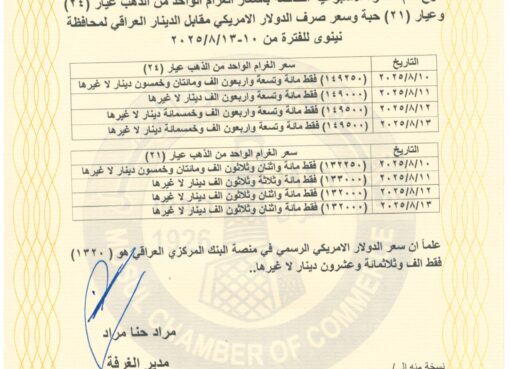 وعيار (٢١) حبة وسعر صرف الدولار الامريكي مقابل الدينار العراقي لمحافظة
نينوى للفترة من ١٠-٢٠٢٥/٨/١٣
التاريخ سعر الغرام الواحد من الذهب عيار (٢٤)
٢٠٢٥/٨/١٠ (١٤٩٢٥٠) فقط مائة وتسعة واربعون الف ومائتان وخمسون دينار لا غيرها
٢٠٢٥/٨/١١ (١٤٩٠٠٠) فقط مائة وتسعة واربعون الف دينار لا غيرها
٢٠٢٥/٨/١٢ (١٤٩٥٠٠) فقط مائة وتسعة واربعون الف وخمسمائة دينار لا غيرها
٢٠٢٥/٨/١٣ (١٤٩٥٠٠) فقط مائة وتسعة واربعون الف وخمسمائة دينار لا غيرها
التاريخ سعر الغرام الواحد من الذهب عيار (٢١)
٢٠٢٥/٨/١٠ (١٣٢٢٥٠) فقط مائة واثنان وثلاثون الف ومائتان وخمسون دينار لا غيرها
٢٠٢٥/٨/١١ (١٣٣٠٠٠) فقط مائة وثلاثة وثلاثون الف دينار لا غيرها
٢٠٢٥/٨/١٢ (١٣٢٠٠٠) فقط مائة واثنان وثلاثون الف دينار لا غيرها
٢٠٢٥/٨/١٣ (١٣٢٠٠٠) فقط مائة واثنان وثلاثون الف دينار لا غيرها
1926
علماً ان سعر الدولار الامريكي الرسمي في منصة البنك المركزي العراقي هو (١٣٢٠)
فقط الف وثلاثمائة وعشرون دينار لا غيرها..
CHAMBER OF COMMERCE
مراد حنا مراد
مدير الغرفة
نسخة منه الى/